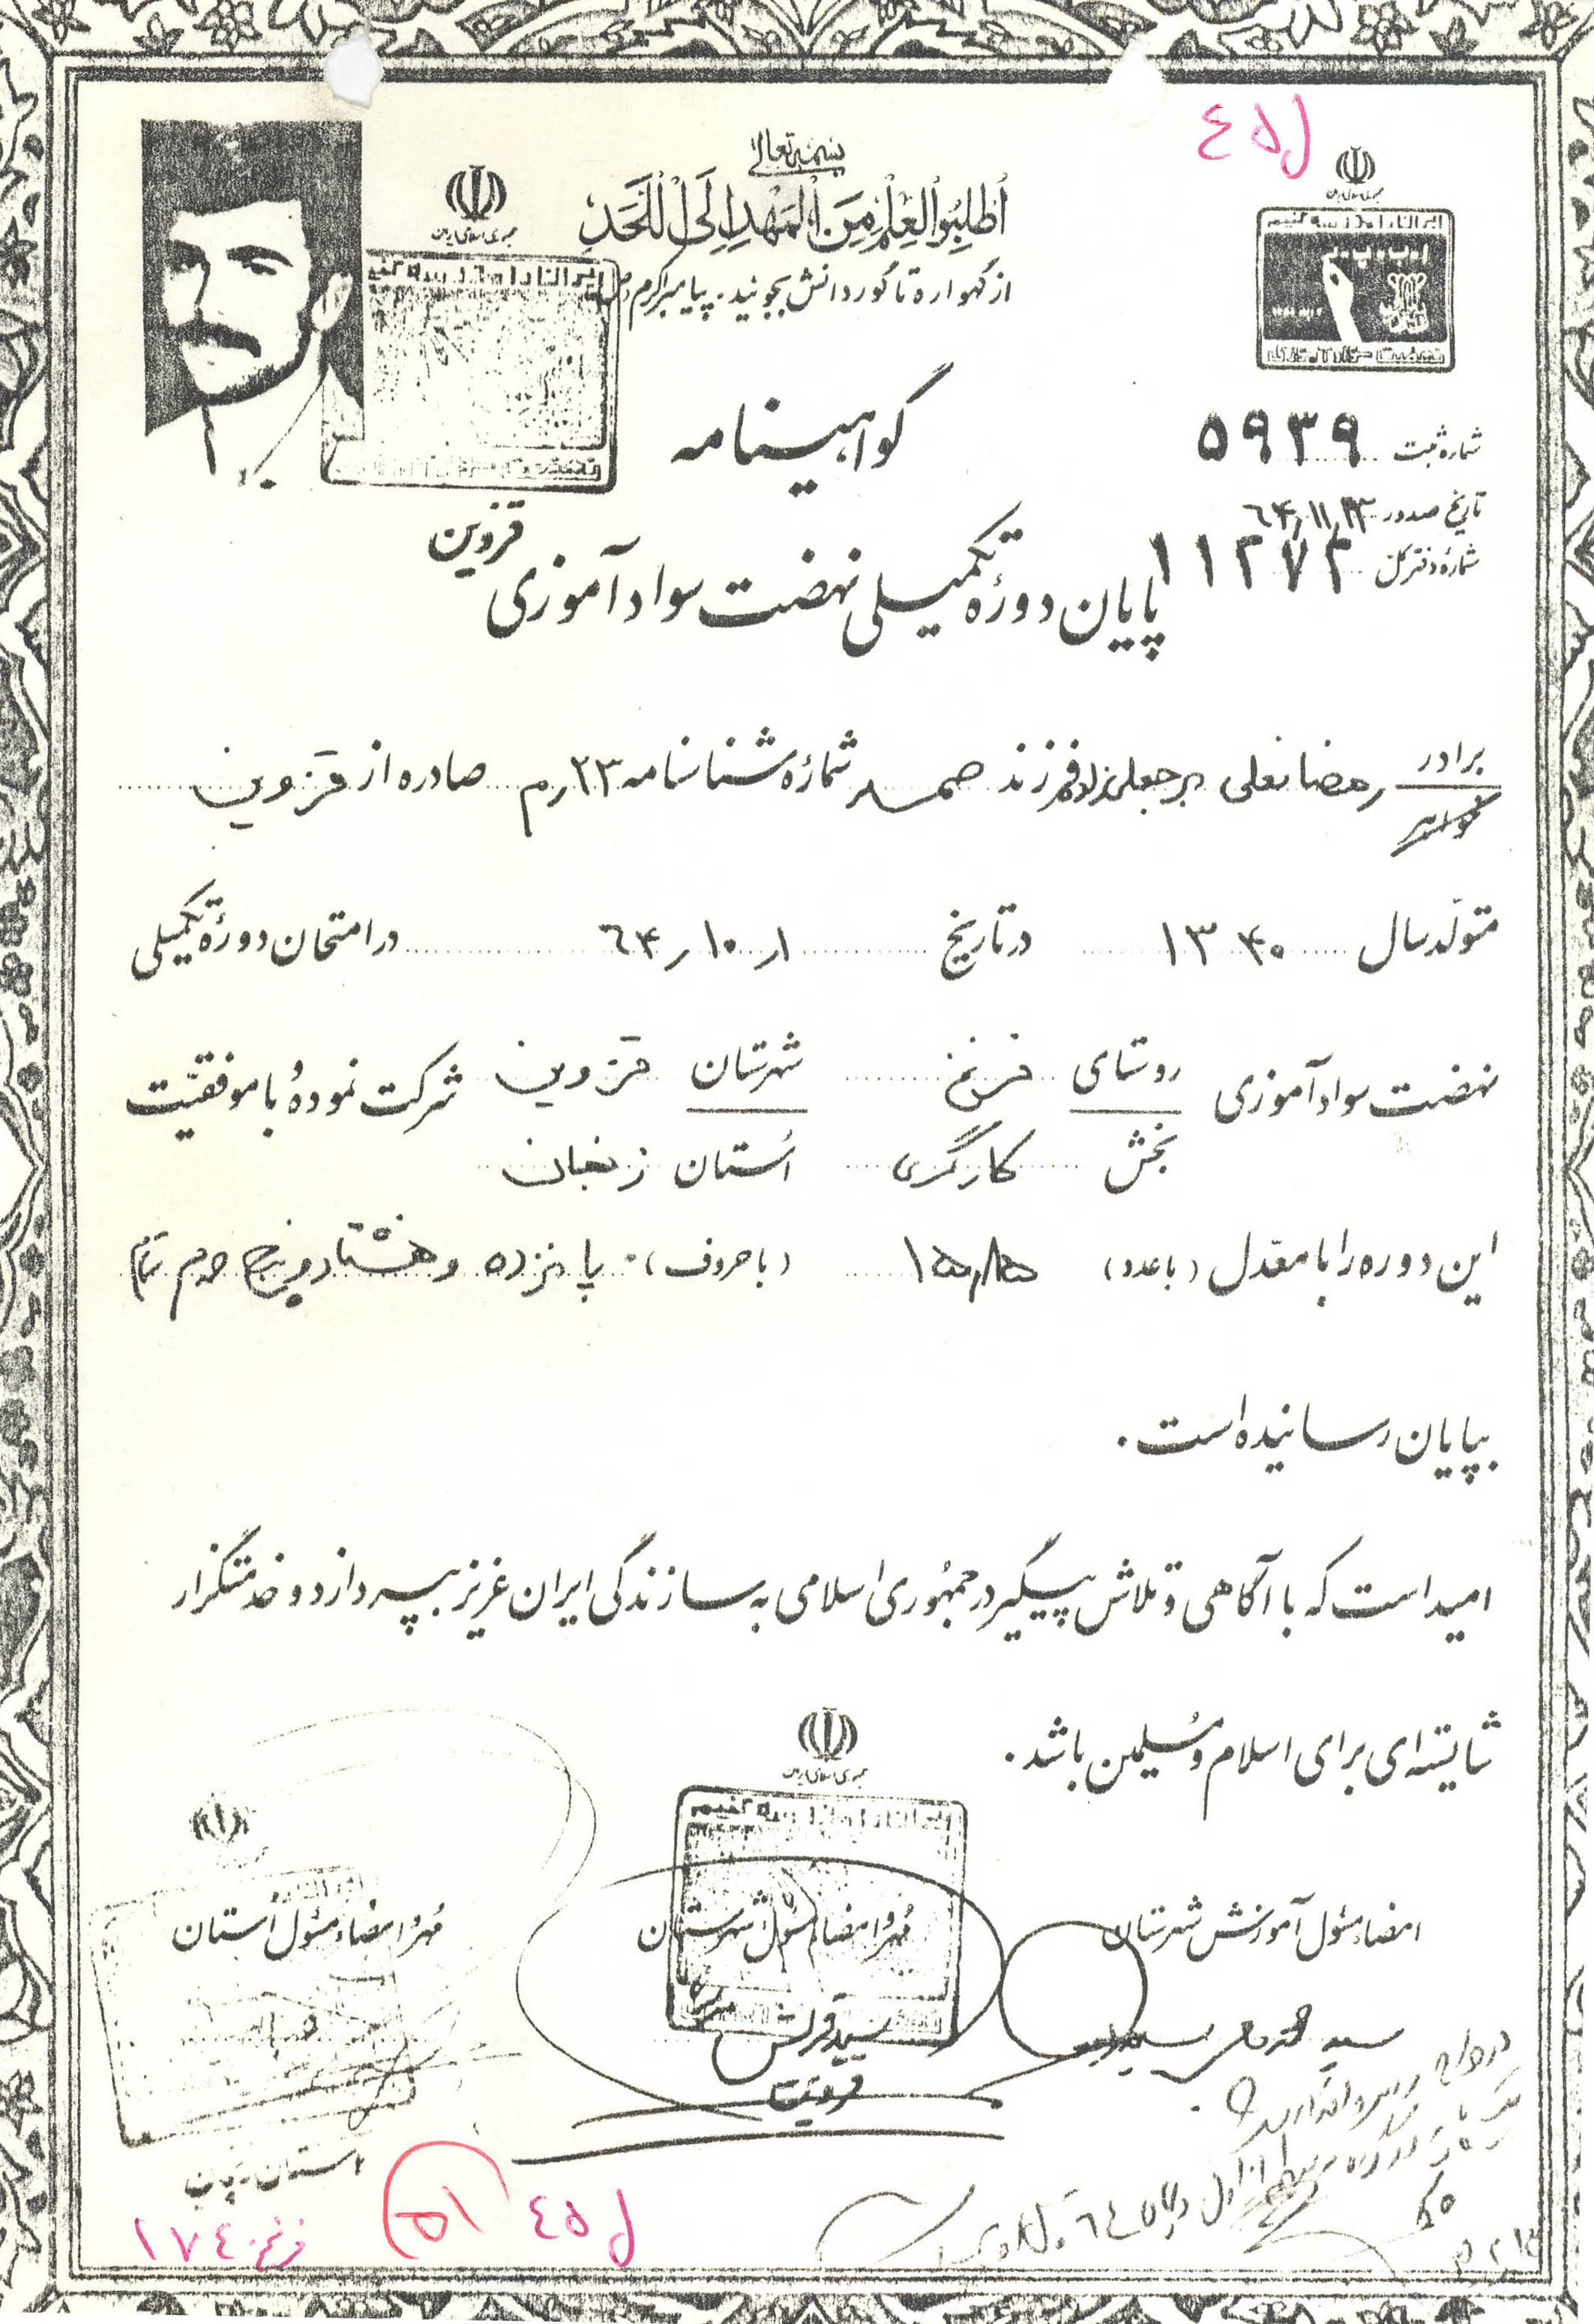 بسمه تعالی
اُطْلُبُوا الْعِلْمَ مِنَ الْمَهْدِ اِلَی اللَّحَدِ
از گهواره تا گور دانش بجوئید. پیامبر اکرم (ص)
جمهوری اسلامی ایران
جمهوری اسلامی ایران
ل ٤٥
گواهینامه
شماره ثبت ۵۹۳۹
تاریخ صدور ٦۴٫۱۱٫۲۳
شماره دفتر کل ۱۱۲۷۲
قزوین
پایان دورهٔ تکمیلی نهضت سوادآموزی
برادر رمضانعلی رجبعلی زاده فرزند صمد شمارهٔ شناسنامه ۲۳ رم صادره از قزوین
خواهر
متولد سال ۱۳۴۰ در تاریخ ۱٫۱۰٫٦۴ در امتحان دورهٔ تکمیلی
نهضت سوادآموزی روستای شهرستان قزوین شرکت نموده و با موفقیّت
بخش کارگری اُستان زنجان
این دوره را با معدل (با عدد) ۱۵٫۸۵ (با حروف) پانزده و هشتاد و پنج صدم تمام
بپایان رسانیده است.
امید است که با آگاهی و تلاش پیگیر در جمهوری اسلامی به سازندگی ایران عزیز بپردازد و خدمتگزار
شایسته‌ای برای اسلام و مسلمین باشد.
جمهوری اسلامی ایران
امضاء مسئول آموزش شهرستان
مُهر و امضاء مسئول شهرستان
مُهر و امضاء مسئول اُستان
قزوین
استان زنجان
ل ٤٥
۵۱
۱۷٤